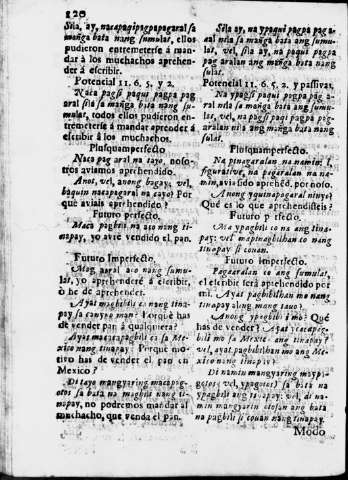 120
Sila, ay, nacapagipagpapagaral sa
mañga bata nang sumulat, ellos
pudieron entremeterse à man-
dar à los muchachos aprehen-
der à escribir.
Potencial 11. 6. 5. y 2.
Naca pagsi paqui pagpa pag
aral sila sa mañga bata nang su-
mulat, todos ellos pudieron en-
tremeterse à mandar aprender à
escribir à los muchachos.
Plusquamperfecto.
Naca pag aral na tayo, noso-
tros aviamos aprehendido.
Anot, vel, anong bagay, vel,
baquin nacapagaral na cayo? Por
què aviais aprehendido?
Futuro perfecto.
Maca pagbili na aco nang ti-
napay, yo avrè vendido el pan.
Futuro Imperfecto.
Mag aaral aco nang sumu-
lat, yo aprenderè à escribir,
ò he de aprender.
Ayat magbibili co nang tina-
pay sa canino man? Porquè has
de vender pan à qualquiera?
Ayat macapagbibili ca sa Me-
xico nang tinapay? Porquè mo-
tivo has de vender el pan en
Mexico?
Di tayo mangyaring macapag-
otos sa bata na magbili nang ti-
napay, no podremos mandar al
muchacho, que venda el pan.
Sila, ay, na ypaqui pagpa pag a-
aral sa mañga bata nang sumu-
lat, vel, sila ay, na paqui pagpa
pag aralan ang mañga bata nang
sulat.
Potencial 11. 6. 5. 2. y passivas.
Na ypagsi paqui pagpa pag
aral nila sa mañga bata nang su-
lat, vel, na pagsi paqui pagpa pag-
aralan nila ang mañga bata nang
sumulat.
Plusquamperfecto.
Na pinagaralan na namin, l,
figurative, na pagaralan na na-
min, avia sido aprehẽd. por noso.
Anong ypinapagaral ninyo?
Què es lo que aprehendisteis?
Futuro perfecto.
Ma ypagbili co na ang tina-
pay; vel mapinagbilhan co nang
tinapay si couan.
Futuro Imperfecto.
Pagaaralan co ang sumulat,
el escribir serà aprehendido por
mi. Ayat pagbibilhan mo nang
tinapay alang mang tauo?
Anong ypagbibili mo? Què
has de vender? Ayat
bili mo sa Mexico ang tinapay?
vel, ayat pagbibilhan mo ang Me-
xico nang tinapay?
Di namin mangyaring
gotos (vel, ypagotos) sa bata na
ypagbili ang tinapay: vel, di na-
min mangyarin otosan ang bata
na pagbili si couan nang tinapay.
Modo